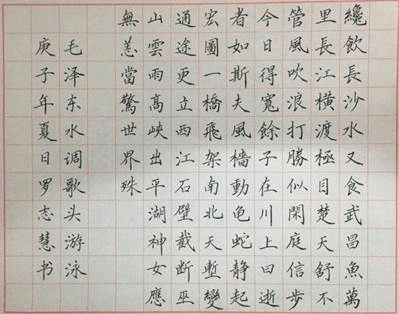 纔飲長沙水又食武昌魚萬
里長江橫渡極目楚天舒不
管風吹浪打勝似閑庭信步
今日得寬餘子在川上曰逝
者如斯夫風檣動龜蛇靜起
宏圖一橋飛架南北天塹變
通途更立西江石壁截斷巫
山雲雨高峽出平湖神女應
無恙當驚世界殊
毛泽东水调歌头游泳
庚子年夏日罗志慧书